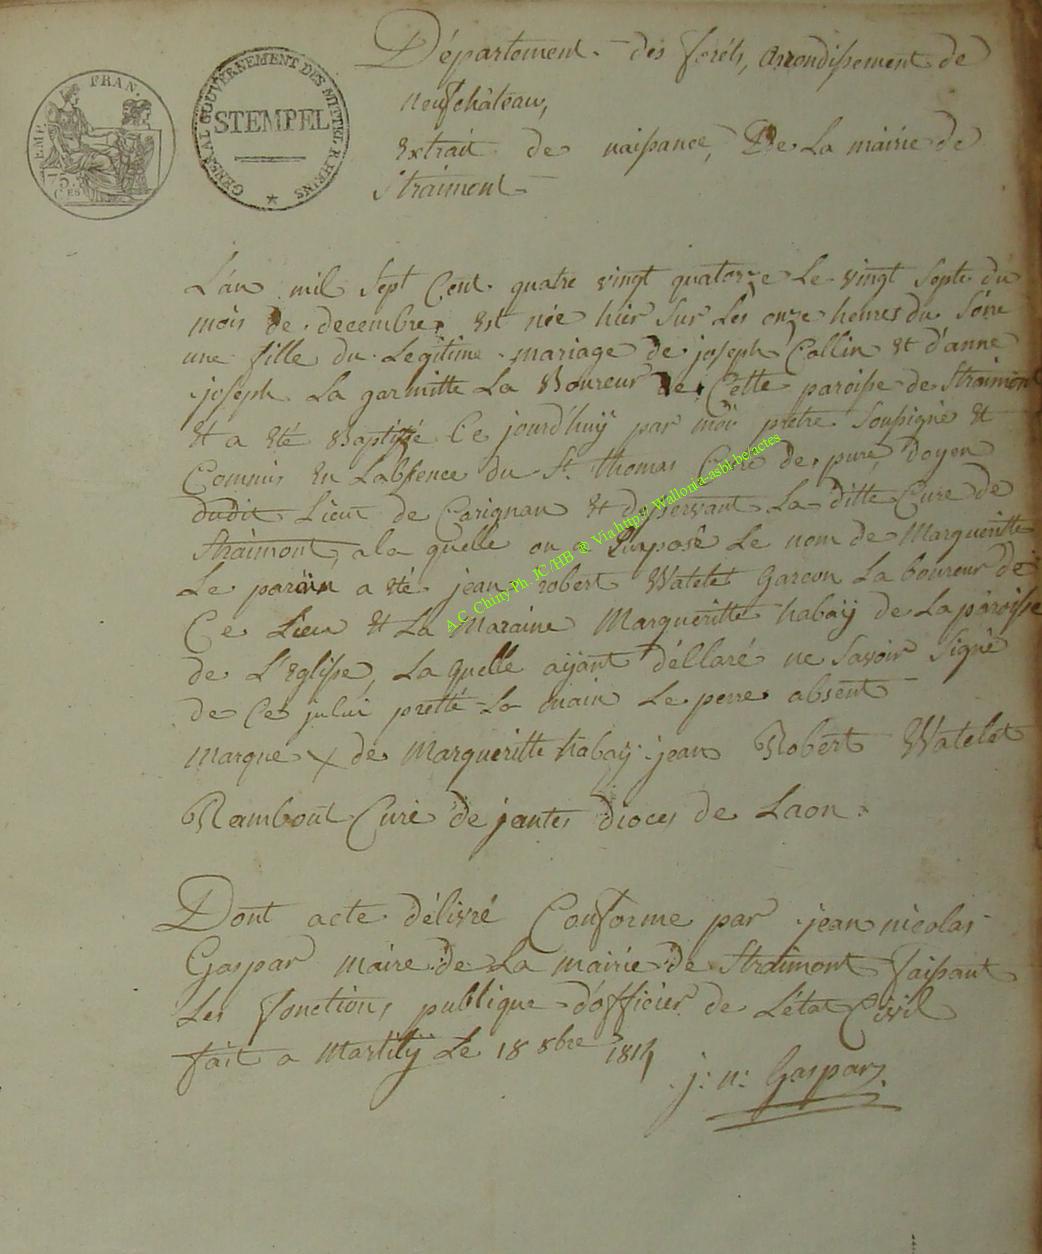 Département des forêts, arrondissement de
Neufchâteau,
Extrait de naissance, De La mairie de
Straimont
REP. FRAN.
75
CES
GENERAL GOUVERNEMENT DES MITTEL RHEINS
STEMPEL
L'an mil Sept Cent quatre vingt quatorze Le vingt Sept du
mois de decembre, Est née hier Sur Les onze heures du Soire
une fille du Legitime mariage de joseph Collin Et d'anne
joseph La garmitte La Boureur de Cette paroisse de Straimont
Et a Eté Baptisée Ce jourd'huÿ par moi pretre Soussigné Et
Commis En Labsence du Sr. thomas Curé de pure, Doyen
dudit Lieu de Carignan Et desservant La ditte Cure de
Straimont, a la quelle on a Imposé Le nom de Margueritte
Le parain a été jean robert Watelet Garcon La boureur de
Ce Lieu Et La Maraine Margueritte habaÿ de La paroisse
de L'Eglise, La quelle aÿant déllaré ne Savoir Signé
de Ce jului pretté La main Le perre absent
Marque X de Margueritte habaÿ jean Robert Watelet
Rambout Curé de jantes dioces de Laon.
Dont acte délivré Conforme par jean nicolas
Gaspar Maire de La mairie de Straimont faissant
Les fonctions publique d'officier de L'état Civil
fait a Martilÿ Le 18 8bre 1814
j: n: Gaspar
A.C. Chiny Ph. JC/HB ® Via http:/ Wallonia-asbl-be/actes